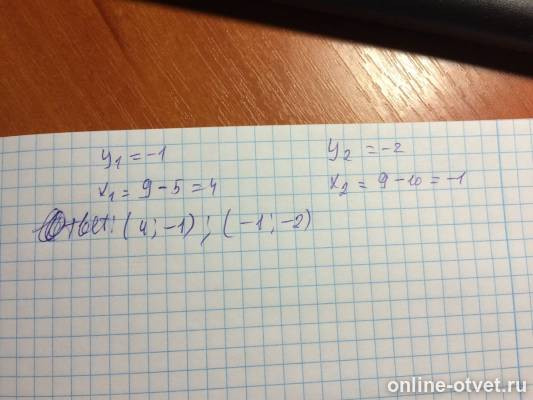 y₁ = -1 y₂ = -2
x₁ = 9 - 5 = 4 x₂ = 9 - 10 = -1
Ответ: (4; -1); (-1; -2)
online-otvet.ru